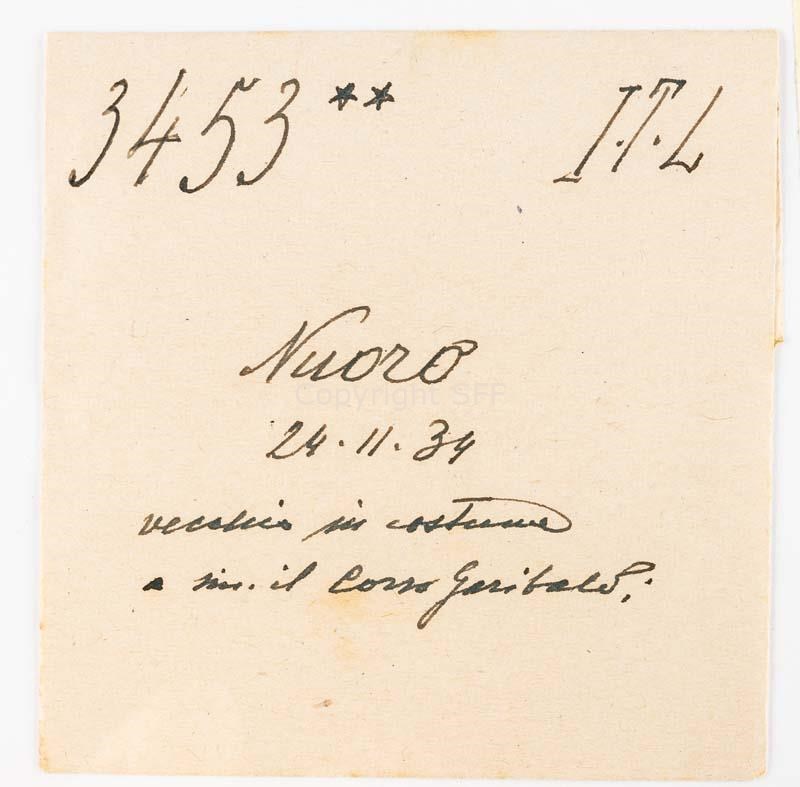 3453 ** I.T.L
Nuoro
Copyright SFF
24.11.34
vecchio in costume
il Corso Garibaldi